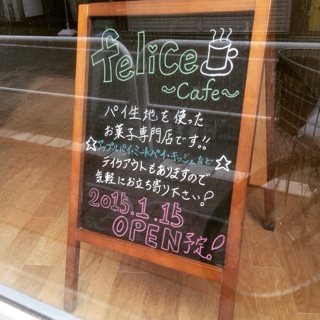 felice
～Cafe～
パイ生地を使った
お菓子専門店です!!
☆アップルパイ・ミートパイ・キッシュなど☆
テイクアウトもありますので
気軽にお立ち寄り下さい♪
2015.1.15
OPEN予定!